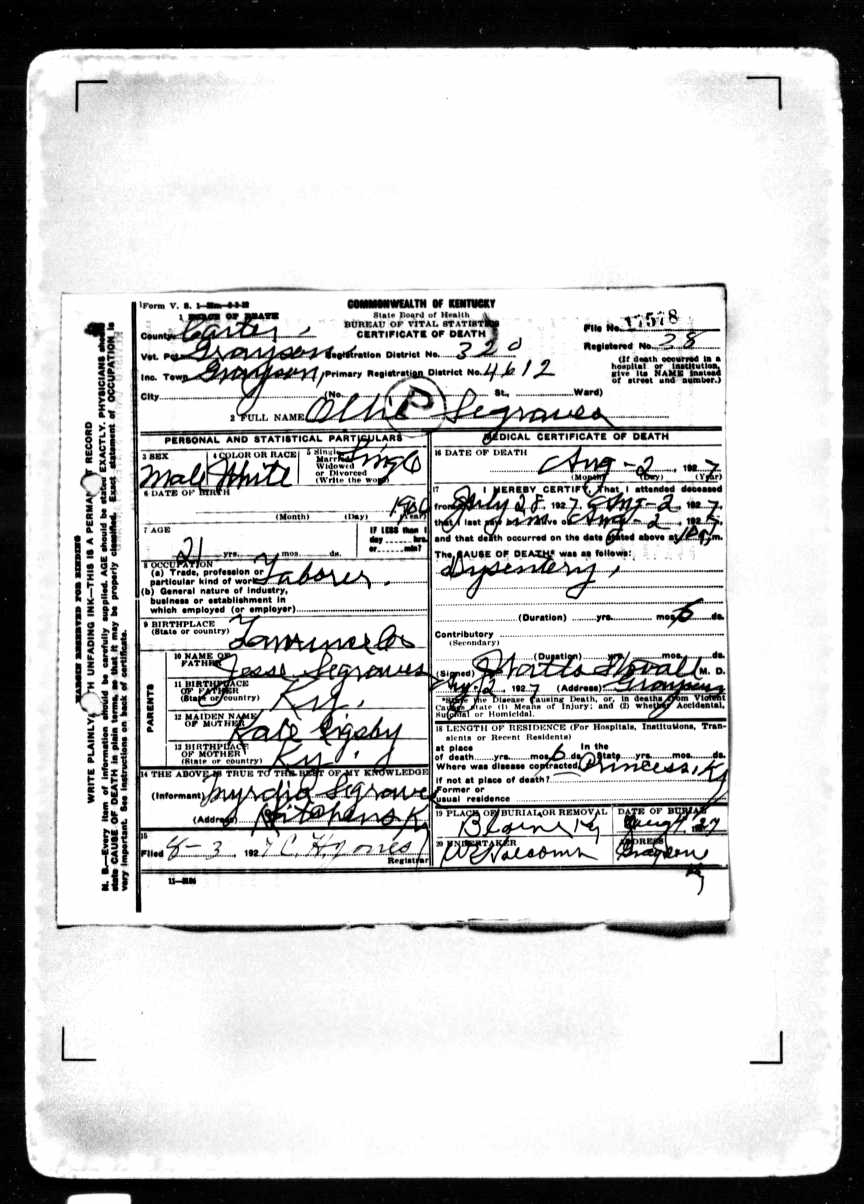 Form V. S. 1
COMMONWEALTH OF KENTUCKY
State Board of Health
BUREAU OF VITAL STATISTICS
CERTIFICATE OF DEATH
1 PLACE OF DEATH
File No. 17578
County Carter
Registered No. 38
Vot. Pct. Grayson Registration District No. 320
(If death occurred in a hospital or institution, give its NAME instead of street and number.)
Inc. Town Grayson, Primary Registration District No. 4612
City (No. St., Ward)
2 FULL NAME Ollie Segraves
P
PERSONAL AND STATISTICAL PARTICULARS
3 SEX Male
4 COLOR OR RACE White
5 Single Married Widowed or Divorced (Write the word) Single
6 DATE OF BIRTH
(Month) (Day) (Year)
7 AGE
21 yrs. mos. ds.
IF LESS than 1 day hrs. or min?
8 OCCUPATION
(a) Trade, profession or particular kind of work Laborer.
(b) General nature of industry,
business or establishment in
which employed (or employer)
9 BIRTHPLACE
(State or country) Lawrence Co
PARENTS
10 NAME OF FATHER Jesse Segraves
11 BIRTHPLACE OF FATHER (State or country) Ky.
12 MAIDEN NAME OF MOTHER Kate
13 BIRTHPLACE OF MOTHER (State or country) Ky.
14 THE ABOVE IS TRUE TO THE BEST OF MY KNOWLEDGE
(Informant) Segraves
(Address) Hitchens Ky
15
Filed 8-3 1927 C. H. Jones
Registrar
11
MEDICAL CERTIFICATE OF DEATH
16 DATE OF DEATH
Aug-2, 1927
(Month) (Day) (Year)
17 I HEREBY CERTIFY, That I attended deceased
from July 28 1927, Aug-2 1927
that I last saw him alive on Aug-2 1927
and that death occurred on the date stated above at m.
The CAUSE OF DEATH* was as follows:
Dysentery,
(Duration) yrs. mos. 6 ds.
Contributory
(Secondary)
(Duration) yrs. mos. ds.
(Signed) M. D.
Aug. 2 1927 (Address) Grayson
*State the Disease Causing Death, or, in deaths from Violent
Causes state (1) Means of Injury; and (2) whether Accidental,
Suicidal or Homicidal.
18 LENGTH OF RESIDENCE (For Hospitals, Institutions, Transients or Recent Residents)
at place of death yrs. mos. 6 ds. In the State yrs. mos. ds.
Where was disease contracted, Princess, Ky
if not at place of death?
Former or
usual residence
19 PLACE OF BURIAL OR REMOVAL Blaine Ky
DATE OF BURIAL Aug 4 '27
20 UNDERTAKER
ADDRESS Grayson
Ky
MARGIN RESERVED FOR BINDING
WRITE PLAINLY, WITH UNFADING INK—THIS IS A PERMANENT RECORD
N. B.—Every item of information should be carefully supplied. AGE should be stated EXACTLY. PHYSICIANS should
state CAUSE OF DEATH in plain terms, so that it may be properly classified. Exact statement of OCCUPATION is
very important. See instructions on back of certificate.